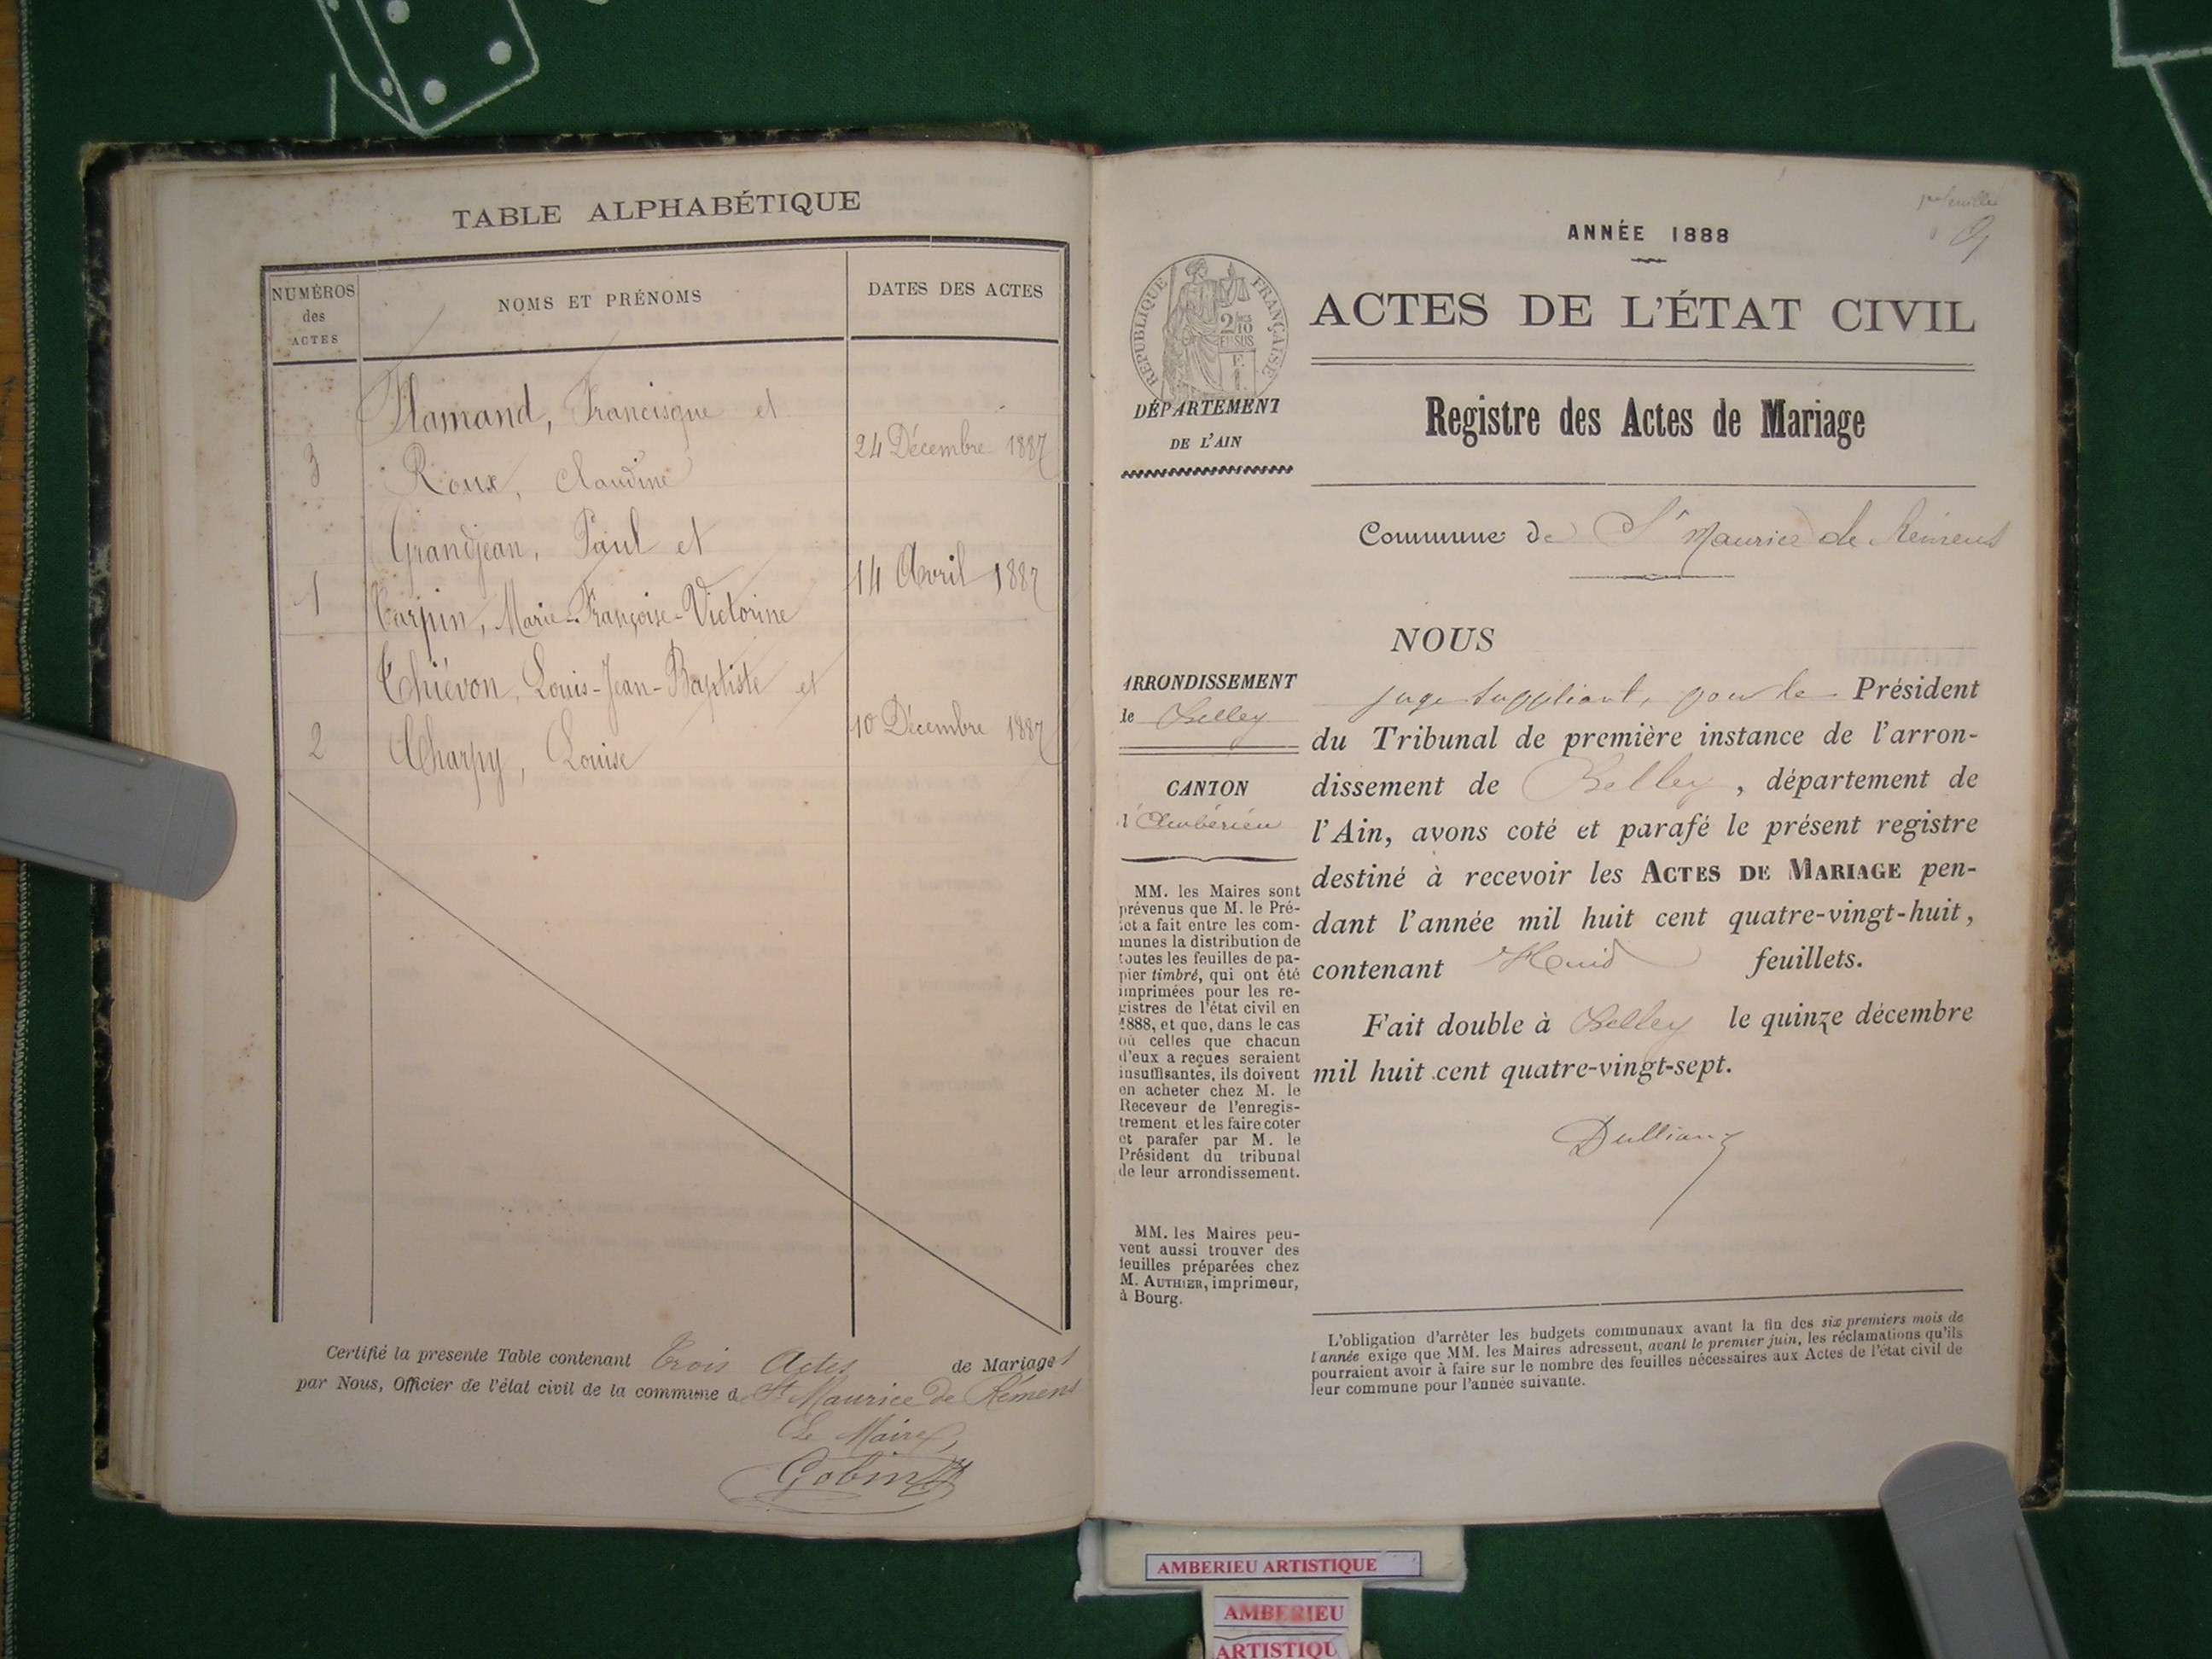 TABLE ALPHABÉTIQUE
NUMÉROS
des
ACTES
NOMS ET PRÉNOMS
DATES DES ACTES
Flamand, Francisque et
3
Roux, Claudine
24 Décembre 1887
Grandjean, Paul et
1
Carpin, Marie-Françoise-Victorine
14 Avril 1887
Thiévon, Louis-Jean-Baptiste et
2
Charpy, Louise
10 Décembre 1887
Certifié la presente Table contenant Trois Actes de Mariages
par Nous, Officier de l'état civil de la commune de St Maurice de Rémens
Le Maire,
Gobin
ANNÉE 1888
RÉPUBLIQUE FRANÇAISE
2/10
EN SUS
DÉPARTEMENT
DE L'AIN
ACTES DE L'ÉTAT CIVIL
Registre des Actes de Mariage
Commune de St Maurice de Rémens
ARRONDISSEMENT
de Belley
CANTON
d'Ambérieu
MM. les Maires sont
prévenus que M. le Pré-
fet a fait entre les com-
munes la distribution de
toutes les feuilles de pa-
pier timbré, qui ont été
imprimées pour les re-
gistres de l'état civil en
1888, et que, dans le cas
où celles que chacun
d'eux a reçues seraient
insuffisantes, ils doivent
en acheter chez M. le
Receveur de l'enregis-
trement et les faire coter
et parafer par M. le
Président du tribunal
de leur arrondissement.
MM. les Maires peu-
vent aussi trouver des
feuilles préparées chez
M. AUTHIER, imprimeur,
à Bourg.
NOUS
juge suppléant, pour le Président
du Tribunal de première instance de l'arron-
dissement de Belley, département de
l'Ain, avons coté et parafé le présent registre
destiné à recevoir les ACTES DE MARIAGE pen-
dant l'année mil huit cent quatre-vingt-huit,
contenant feuillets.
Fait double à Belley le quinze décembre
mil huit cent quatre-vingt-sept.
L'obligation d'arrêter les budgets communaux avant la fin des six premiers mois de
l'année exige que MM. les Maires adressent, avant le premier juin, les réclamations qu'ils
pourraient avoir à faire sur le nombre des feuilles nécessaires aux Actes de l'état civil de
leur commune pour l'année suivante.
AMBERIEU ARTISTIQUE
AMBERIEU
ARTISTIQU